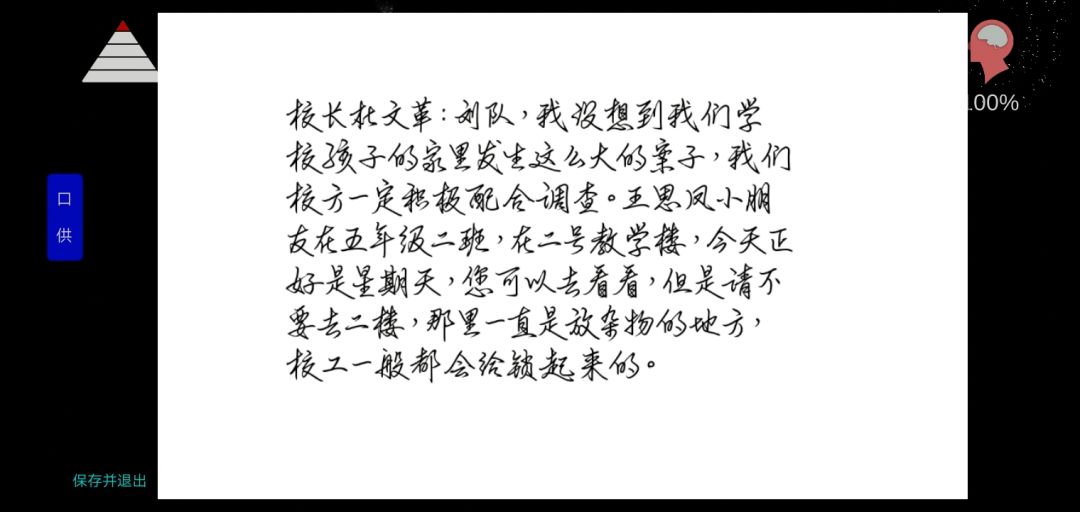 校长杜文革：刘队，我没想到我们学
校孩子的家里发生这么大的案子，我们
校方一定积极配合调查。王思凤小朋
友在五年级二班，在二号教学楼，今天正
好是星期天，您可以去看看，但是请不
要去二楼，那里一直是放杂物的地方，
校工一般都会给锁起来的。
100%
口
供
保存并退出